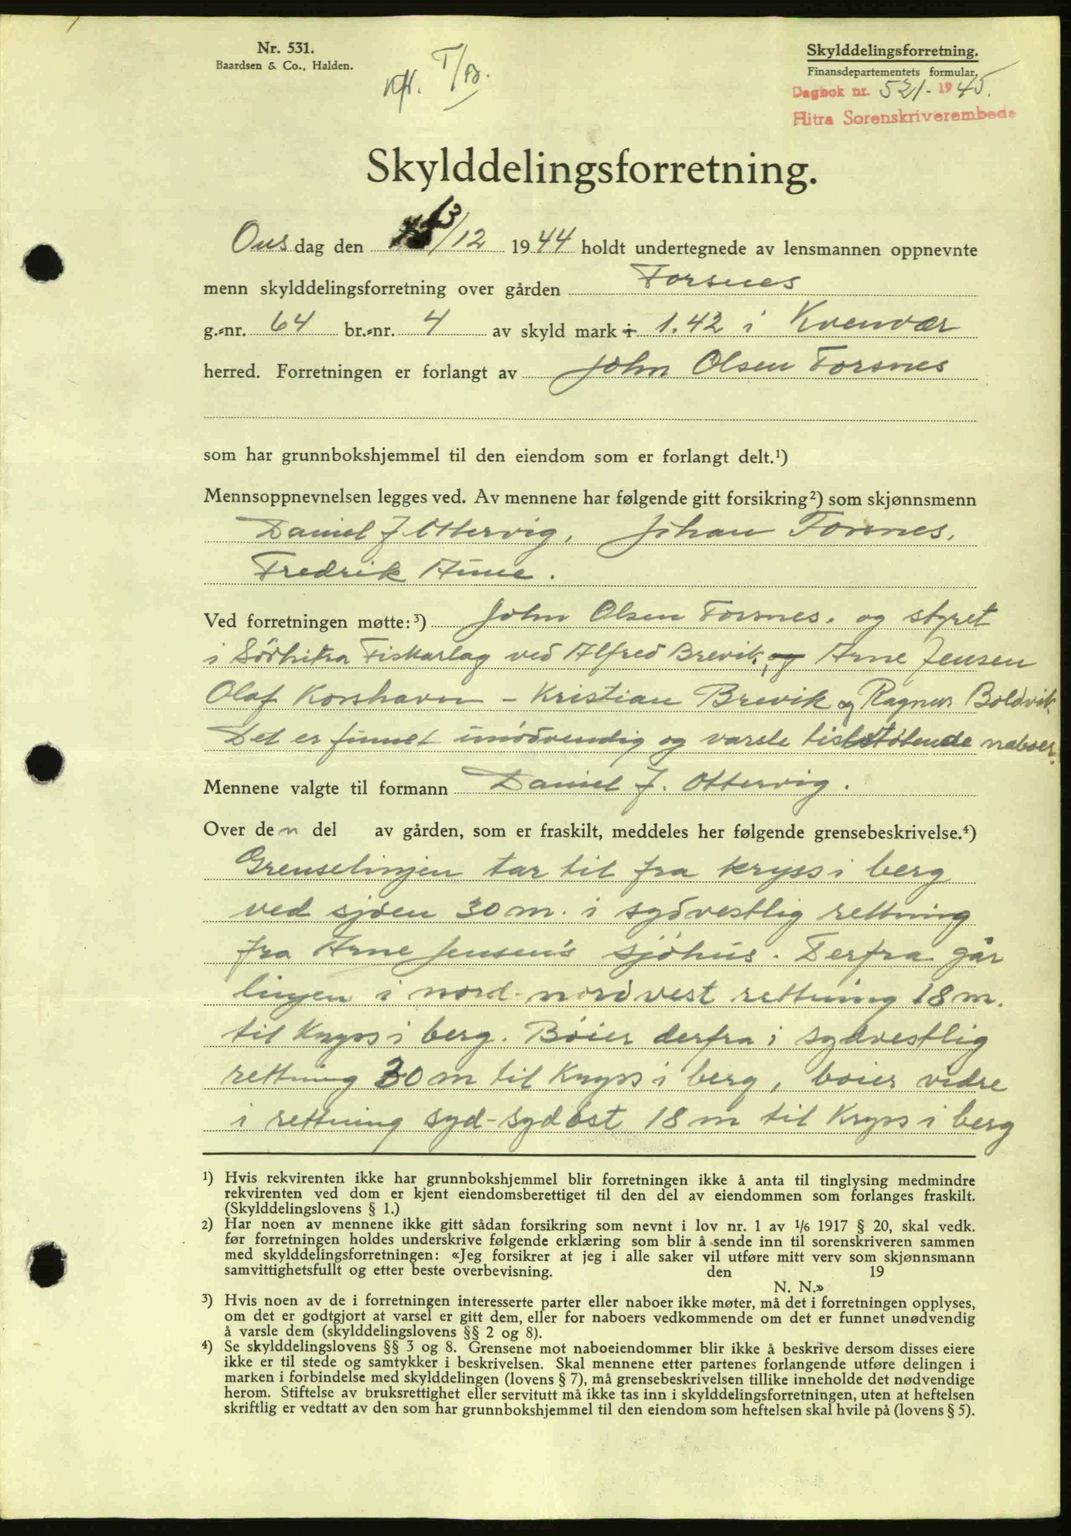 Nr. 531.
Baardsen & Co., Halden.
Skylddelingsforretning.
Finansdepartementets formular.
Dagbok nr. 521-1945.
Hitra Sorenskriverembede
Skylddelingsforretning.
Onsdag den 13/12 1944 holdt undertegnede av lensmannen oppnevnte
menn skylddelingsforretning over gården Forsnes
g.-nr. 64 br.-nr. 4 av skyld mark 1.42 i Kvenvær
herred. Forretningen er forlangt av John Olsen Forsnes
som har grunnbokshjemmel til den eiendom som er forlangt delt.¹)
Mennsoppnevnelsen legges ved. Av mennene har følgende gitt forsikring²) som skjønnsmenn
Daniel J Ottervig, Johan Forsnes,
Fredrik Aune.
Ved forretningen møtte:³) John Olsen Forsnes. og styret
i Sörhitra Fiskarlag ved Alfred Brevik, og Arne Jensen
Olaf Korshavn – Kristian Brevik og Ragnar Boldvik.
Det er funnet unödvendig og varsle tilstötende naboer.
Mennene valgte til formann Daniel J. Ottervig.
Over den del av gården, som er fraskilt, meddeles her følgende grensebeskrivelse.⁴)
Grenselinjen tar til fra kryss i berg
ved sjöen 30 m. i sydvestlig rettning
fra Arne Jensen's sjöhus. Derfra går
linjen i nord-nordvest rettning 18 m.
til Kryss i berg. Böier derfra i sydvestlig
rettning 30 m til Kryss i berg, boier vidre
i rettning syd-sydöst 18 m til Kryss i berg
¹) Hvis rekvirenten ikke har grunnbokshjemmel blir forretningen ikke å anta til tinglysing medmindre
rekvirenten ved dom er kjent eiendomsberettiget til den del av eiendommen som forlanges fraskilt.
(Skylddelingslovens § 1.)
²) Har noen av mennene ikke gitt sådan forsikring som nevnt i lov nr. 1 av 1/6 1917 § 20, skal vedk.
før forretningen holdes underskrive følgende erklæring som blir å sende inn til sorenskriveren sammen
med skylddelingsforretningen: «Jeg forsikrer at jeg i alle saker vil utføre mitt verv som skjønnsmann
samvittighetsfullt og etter beste overbevisning. den 19
N. N.»
³) Hvis noen av de i forretningen interesserte parter eller naboer ikke møter, må det i forretningen opplyses,
om det er godtgjort at varsel er gitt dem, eller for naboers vedkommende om det er funnet unødvendig
å varsle dem (skylddelingslovens §§ 2 og 8).
⁴) Se skylddelingslovens §§ 3 og 8. Grensene mot naboeiendommer blir ikke å beskrive dersom disses eiere
ikke er til stede og samtykker i beskrivelsen. Skal mennene etter partenes forlangende utføre delingen i
marken i forbindelse med skylddelingen (lovens § 7), må grensebeskrivelsen tillike inneholde det nødvendige
herom. Stiftelse av bruksrettighet eller servitutt må ikke tas inn i skylddelingsforretningen, uten at heftelsen
skriftlig er vedtatt av den som har grunnbokshjemmel til den eiendom som heftelsen skal hvile på (lovens § 5).